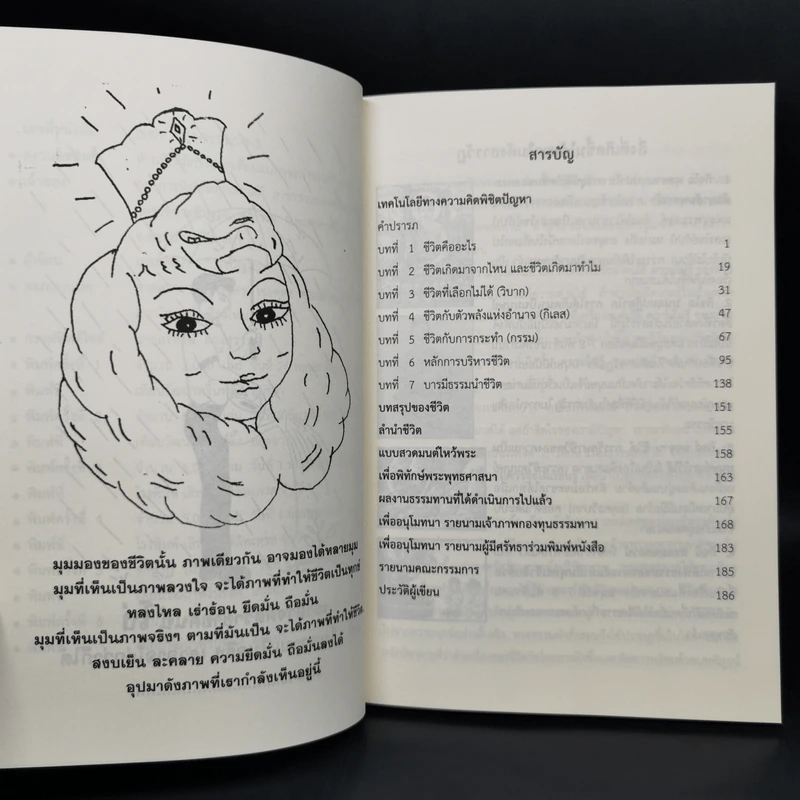 มุมมองของชีวิตนั้น ภาพเดียวกัน อาจมองได้หลายมุม
มุมที่เห็นเป็นภาพลวงใจ จะได้ภาพที่ทำให้ชีวิตเป็นทุกข์
หลงไหล เร่าร้อน ยึดมั่น ถือมั่น
มุมที่เห็นเป็นภาพจริงๆ ตามที่มันเป็น จะได้ภาพที่ทำให้ชีวิต
สงบเย็น ละคลาย ความยึดมั่น ถือมั่นลงได้
อุปมาดังภาพที่เรากำลังเห็นอยู่นี้
สารบัญ
เทคโนโลยีทางความคิดพิชิตปัญหา
คำปรารภ
บทที่ 1 ชีวิตคืออะไร 1
บทที่ 2 ชีวิตเกิดมาจากไหน และชีวิตเกิดมาทำไม 19
บทที่ 3 ชีวิตที่เลือกไม่ได้ (วิบาก) 31
บทที่ 4 ชีวิตกับตัวพลังแห่งอำนาจ (กิเลส) 47
บทที่ 5 ชีวิตกับการกระทำ (กรรม) 67
บทที่ 6 หลักการบริหารชีวิต 95
บทที่ 7 บารมีธรรมนำชีวิต 138
บทสรุปของชีวิต 151
ลำนำชีวิต 155
แบบสวดมนต์ไหว้พระ 158
เพื่อพิทักษ์พระพุทธศาสนา 163
ผลงานธรรมทานที่ได้ดำเนินการไปแล้ว 167
เพื่ออนุโมทนา รายนามเจ้าภาพกองทุนธรรมทาน 168
เพื่ออนุโมทนา รายนามผู้มีศรัทธาร่วมพิมพ์หนังสือ 183
รายนามคณะกรรมการ 185
ประวัติผู้เขียน 186